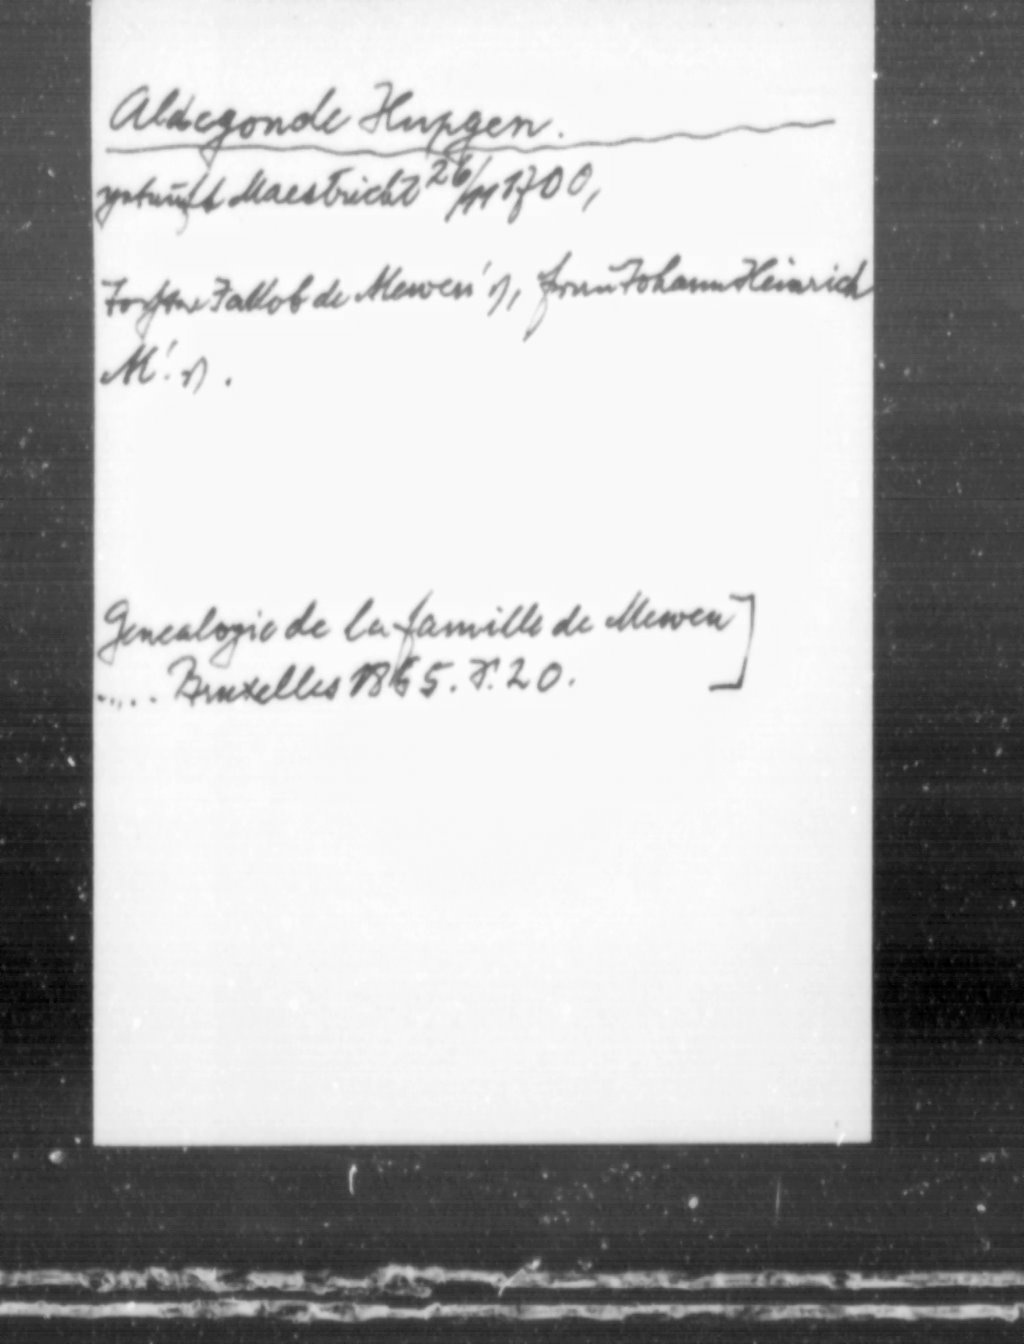 Aldegonde Hupgen.
getauft Maestricht 26/11 1700,
Tochter Jakob de Mewen's, Frau Johann Heinrich
M's.
Genealogie de la famille de Mewen]
..... Bruxelles 1865. S. 20.